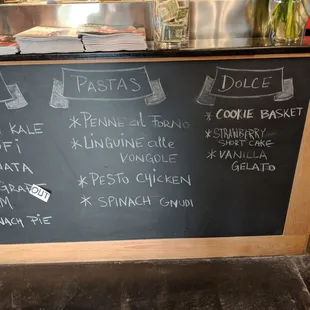 KALE
OUT
PIE
PASTAS
* PENNE al FORNO
* LINGUINE alle
VONGOLE
* PESTO CHICKEN
* SPINACH GNUDI
DOLCE
* COOKIE BASKET
* STRAWBERRY
SHORT CAKE
* VANILLA
GELATO